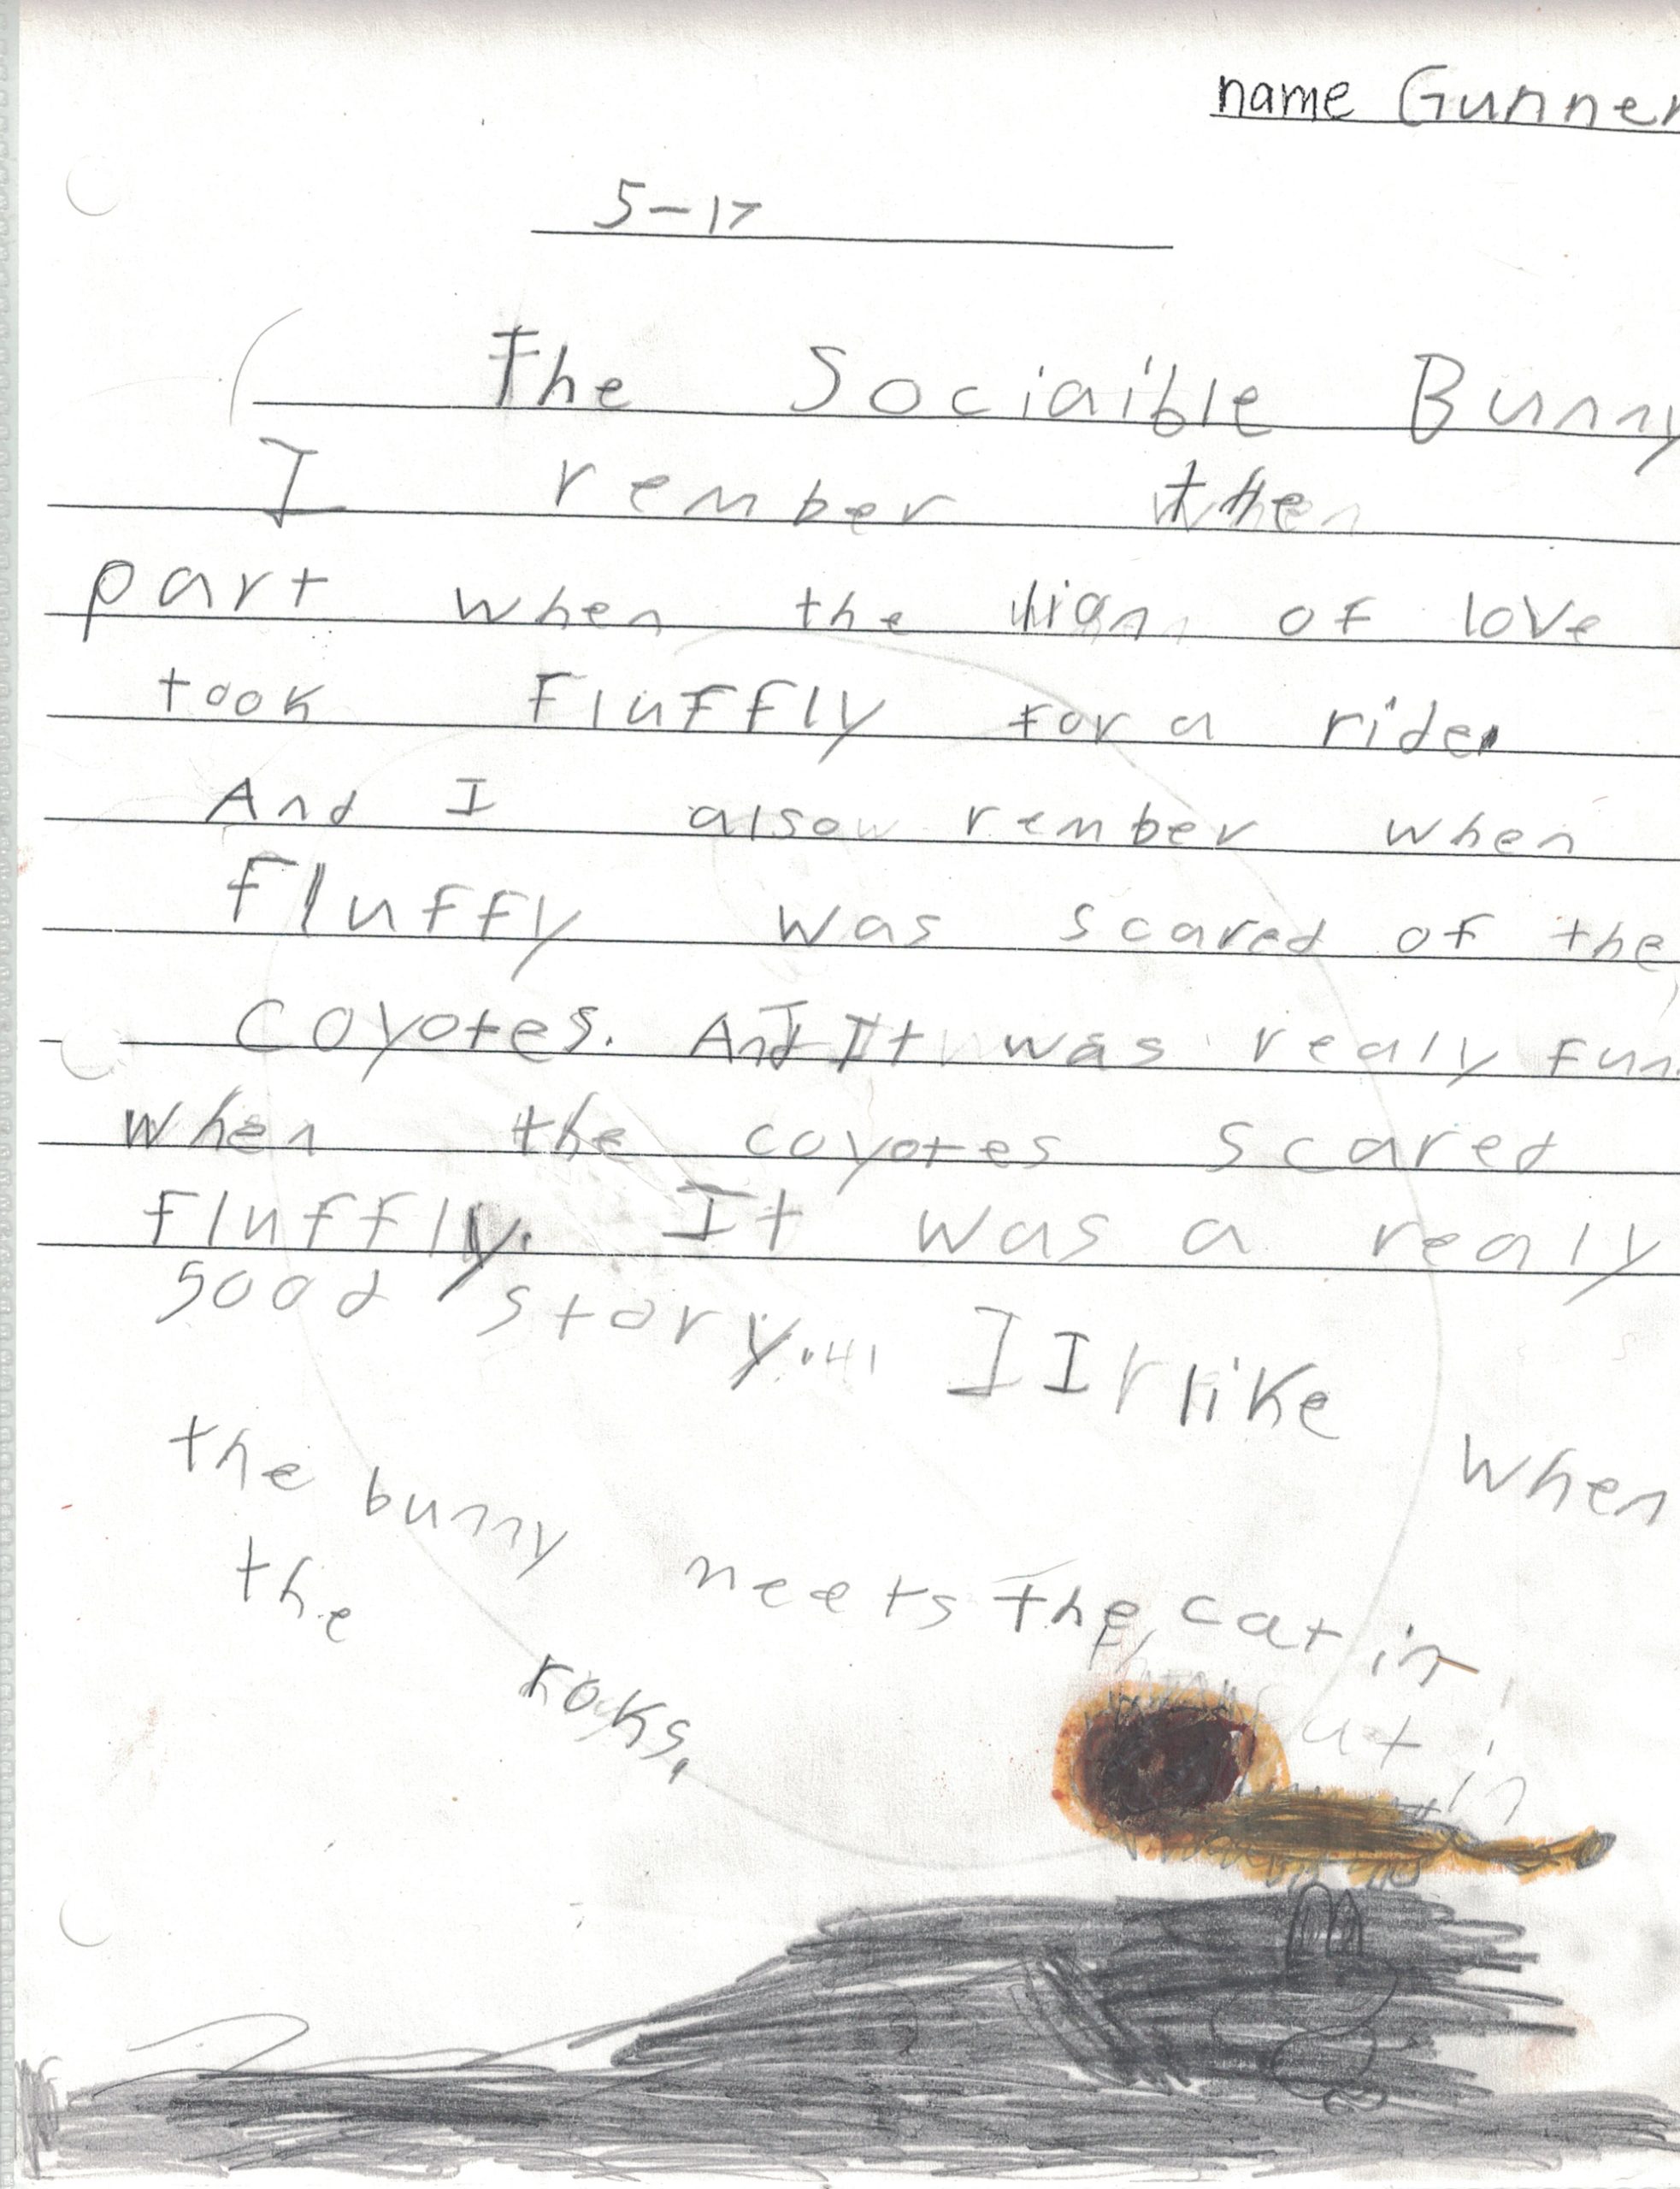 name Gunner
5-17
The Sociaible Bunny
I rember the
part when the lion of love
took Fluffly for a ride.
And I also rember when
Fluffy was scared of the
Coyotes. And It was realy fun
when the coyotes scared
Fluffly. It was a realy
good story. I I like when
the bunny meets the cat in
the roks.